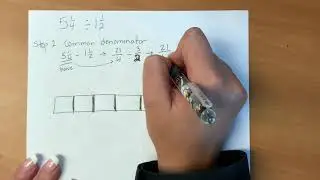 5 1/4 ÷ 1 1/2
Step 1 Common denominator
5 1/4 ÷ 1 1/2 → 21/4 ÷ 3/2 → 21